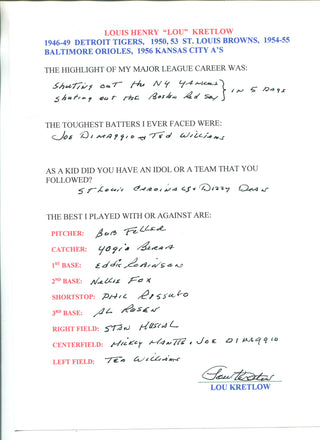 LOUIS HENRY "LOU" KRETLOW
1946-49 DETROIT TIGERS, 1950, 53 ST. LOUIS BROWNS, 1954-55
BALTIMORE ORIOLES, 1956 KANSAS CITY A'S
THE HIGHLIGHT OF MY MAJOR LEAGUE CAREER WAS:
Shutting out the NY Yankees } in 5 days
Shutting out the Boston Red Sox
THE TOUGHEST BATTERS I EVER FACED WERE:
Joe DiMaggio & Ted Williams
AS A KID DID YOU HAVE AN IDOL OR A TEAM THAT YOU
FOLLOWED?
St Louis Cardinals & Dizzy Dean
THE BEST I PLAYED WITH OR AGAINST ARE:
PITCHER: Bob Feller
CATCHER: Yogi Berra
1ST BASE: Eddie Robinson
2ND BASE: Nellie Fox
SHORTSTOP: Phil Rossuto
3RD BASE: Al Rosen
RIGHT FIELD: Stan Musial
CENTERFIELD: Mickey Mantle & Joe DiMaggio
LEFT FIELD: Ted Williams
Lou Kretlow
LOU KRETLOW